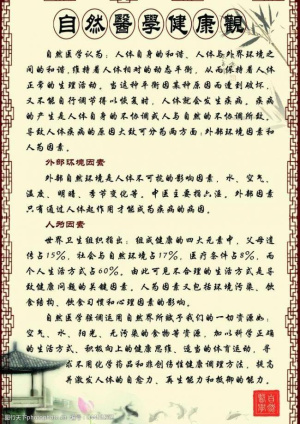 自然醫學健康觀
自然医学认为:人体自身的和谐,人体与外界环境之
间的和谐,维持着人体相对的动态平衡,从而保持着人体
正常的生理活动。当这种平衡因某种原因而遭到破坏,
又不能自行调节得以恢复时,人体就会发生疾病。疾病
的产生是人体自身的不协调或人与自然的不协调所致。
导致人体疾病的原因大致可分为两方面:外部环境因素和
人为因素。
外部环境因素
外部自然环境是人体不可抗的影响因素,水、空气、
温度、明暗、季节变化等。中医主要指六淫。外部因素
只有通过人体起作用才能成为疾病的病因。
人为因素
世界卫生组织指出:组成健康的四大元素中,父母遗
传占15%,社会与自然环境占17%,医疗条件占8%,而
个人生活方式占60%。由此可见不合理的生活方式是导
致健康问题的关键因素。人为因素又包括环境污染、饮
食结构、饮食习惯和心理因素的影响。
自然医学强调运用自然界所赋予我们的一切资源如:
空气、水、阳光、无污染的食物等资源,加以科学正确
的生活方式、积极向上的健康思维,适当的体育运动,寻
求不用化学药品和非创伤性健康调理方法,提高
并激发人体的自愈力、再生能力和抵御的能力。